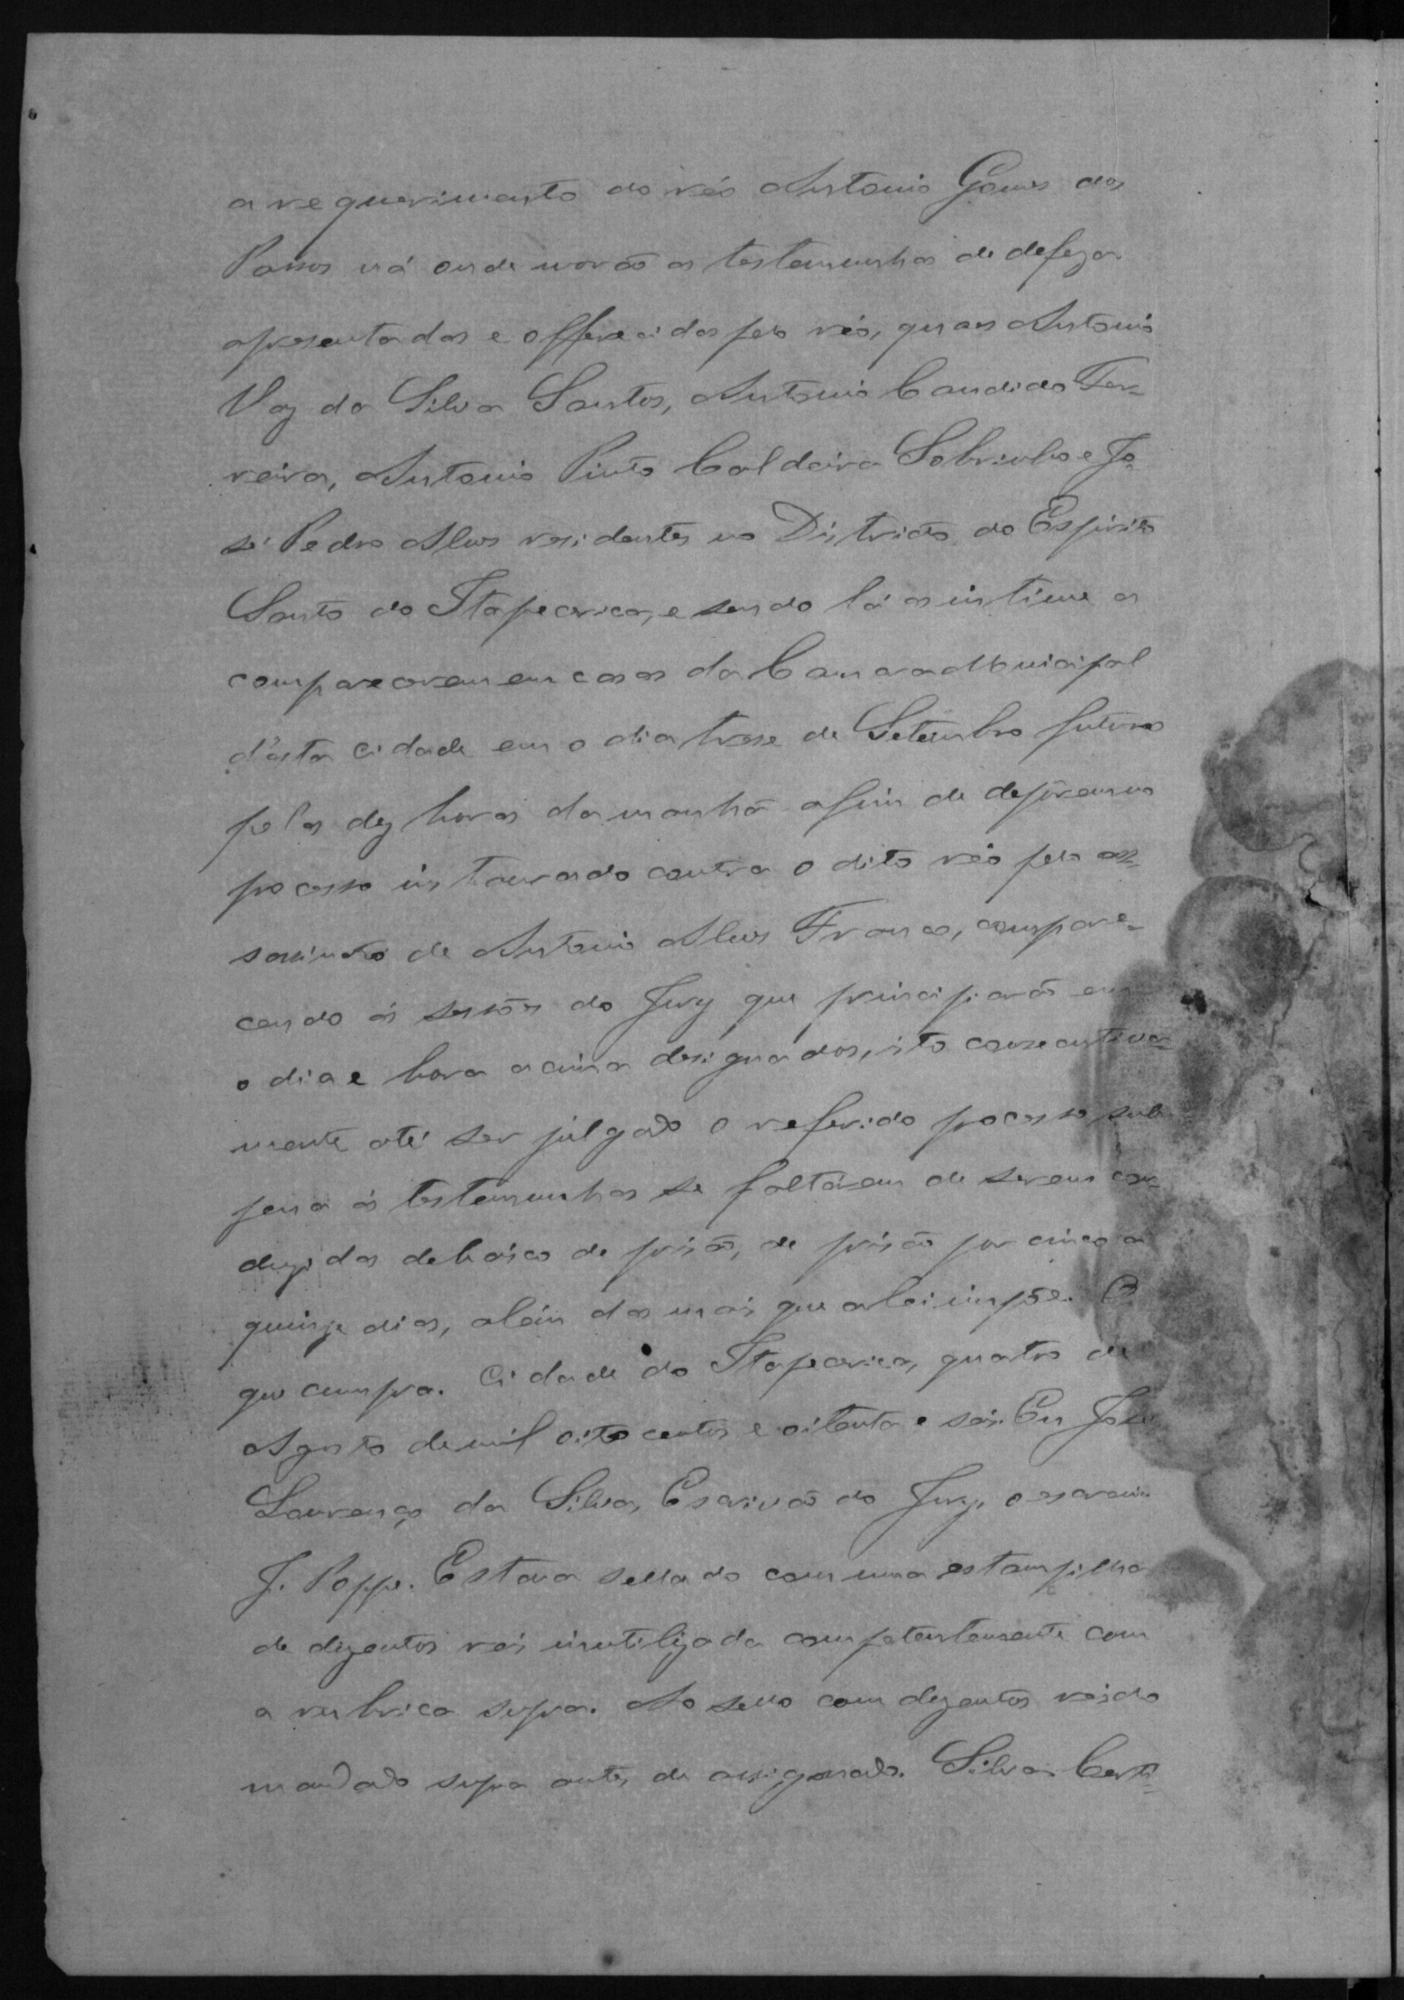 a requerimento do réo Antonio Gomes dos
Passos vá onde morão as testemunhas de defeza
apresentadas e offerecidas pelo réo, quaes Antonio
Vaz da Silva Santos, Antonio Candido Fer-
reira, Antonio Pinto Caldeira Sobrinho e Jo-
sé Pedro Alves residentes no Districto do Espirito
Santo do Itapecerica, e sendo lá as intime a
comparecerem em casas da Camara Municipal
d'esta cidade em o dia trese de Setembro futuro
pelas dez horas da manhã afim de deporem no
processo instaurado contra o dito réo pelo as-
sassinato de Antonio Alves Franco, compare-
cendo ás sessões do Jury que principiarão em
o dia e hora acima designados, isto consecutiva-
mente até ser julgado o referido processo sub
pena ás testemunhas se faltarem de serem con-
duzidas debaixo de prisão, de prisão por cinco a
quinze dias, além das mais que a lei impõe. O
que cumpra. Cidade do Itapecerica, quatro de
Agosto de mil oito centos e oitenta e seis. Eu José
Lourenço da Silva, Escrivão do Jury, o escrevi.
J. Poppe. Estava sellado com uma estampilha
de duzentos réis inutilizada competentemente com
a rubrica supra. Ao sello com duzentos réis do
mandado supra antes de assignado. Silva. Certi-